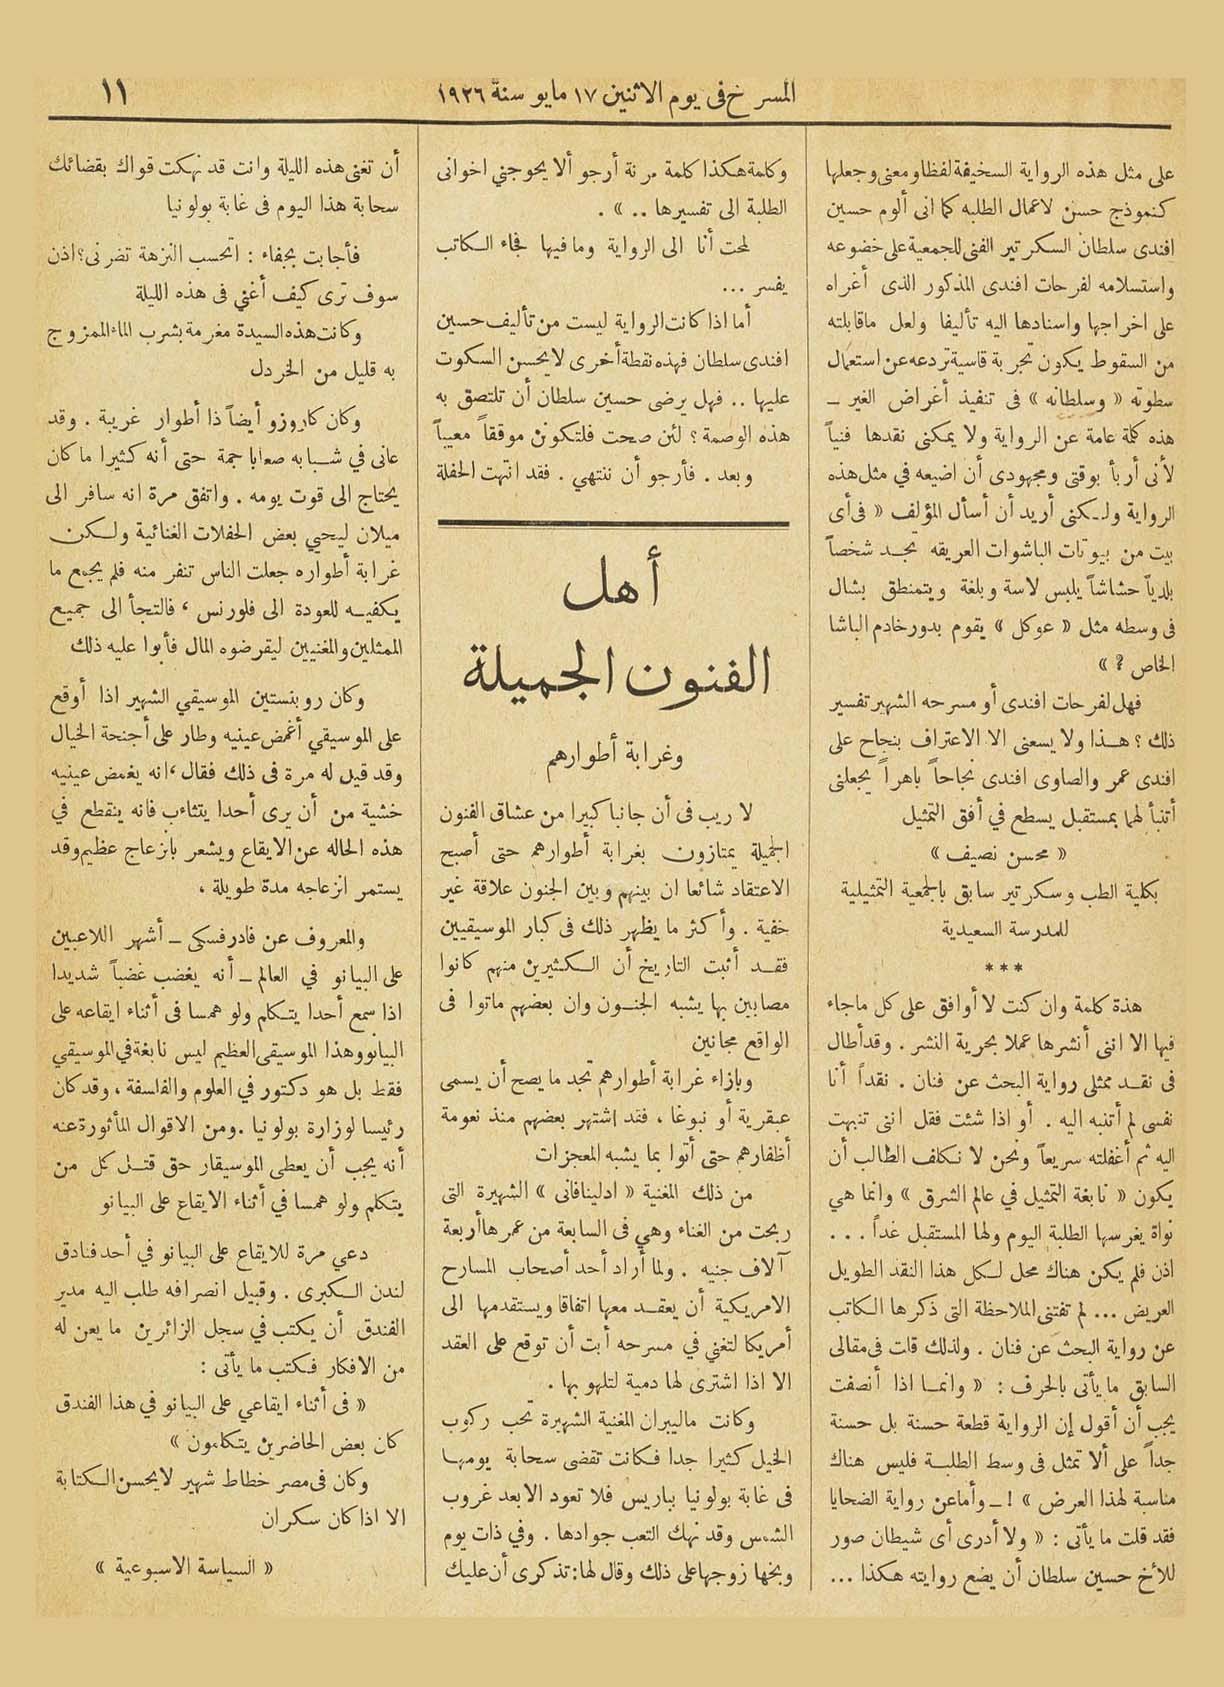 المسرح فى يوم الاثنين ١٧ مايو سنة ١٩٢٦
١١
على مثل هذه الرواية السخيفة لفظا ومعنى وجعلها
كنموذج حسن لاعمال الطلبه كما انى ألوم حسين
افندى سلطان السكرتير الفنى للجمعية على خضوعه
واستسلامه لفرحات افندى المذكور الذى أغراه
على اخراجها واسنادها اليه تأليفا ولعل ماقابلته
من السقوط يكون تجربة قاسية تردعه عن استعمال
سطوته « وسلطانه » فى تنفيذ أغراض الغير ـ
هذه كلمة عامة عن الرواية ولا يمكنى نقدها فنياً
لأنى أربأ بوقتى ومجهودى أن اضيعه في مثل هذه
الرواية ولكنى أريد أن أسأل المؤلف « فى أى
بيت من بيوتات الباشوات العريقه تجد شخصاً
بلدياً حشاشاً يلبس لاسة وبلغة ويتمنطق بشال
فى وسطه مثل « عوكل » يقوم بدور خادم الباشا
الخاص ؟ »
فهل لفرحات افندى أو مسرحه الشهير تفسير
ذلك ؟ هذا ولا يسعنى الا الاعتراف بنجاح على
افندى عمر والصاوى افندى نجاحاً باهراً يجعلنى
أتنبأ لهما بمستقبل يسطع في أفق التمثيل
« محسن نصيف »
بكلية الطب وسكرتير سابق بالجمعية التمثيلية
للمدرسة السعيدية
***
هذة كلمة وان كنت لا أوافق على كل ماجاء
فيها الا اننى أنشرها عملا بحرية النشر . وقد أطال
فى نقد ممثلى رواية البحث عن فنان . نقداً أنا
نفسى لم أتنبه اليه . أو اذا شئت فقل اننى تنبهت
اليه ثم أغفلته سريعاً ونحن لا نكلف الطالب أن
يكون « نابغة التمثيل في عالم الشرق » وانما هي
نواة يغرسها الطلبة اليوم ولها المستقبل غداً ...
اذن فلم يكن هناك محل لكل هذا النقد الطويل
العريض ... لم تفتنى الملاحظة التى ذكرها الكاتب
عن رواية البحث عن فنان . ولذلك قات فى مقالى
السابق ما يأتى بالحرف : « وانما اذا أنصفت
يجب أن أقول إن الرواية قطعة حسنة بل حسنة
جداً على ألا تمثل فى وسط الطلبة فليس هناك
مناسبة لهذا العرض » ! ـ وأما عن رواية الضحايا
فقد قلت ما يأتى : « ولا أدرى أى شيطان صور
للأخ حسين سلطان أن يضع روايته هكذا ...
وكلمة هكذا كلمة مرنة أرجو ألا يحوجني اخوانى
الطلبة الى تفسيرها .. » .
لمحت أنا الى الرواية وما فيها فجاء الكاتب
يفسر ...
أما اذا كانت الرواية ليست من تأليف حسين
افندى سلطان فهذه نقطة أخرى لايحسن السكوت
عليها .. فهل يرضى حسين سلطان أن تلتصق به
هذه الوصمة ؟ لئن صحت فلتكونن موقفاً معيباً
وبعد . فأرجو أن ننتهي . فقد انتهت الحفلة
أهل
الفنون الجميلة
وغرابة أطوارهم
لا ريب فى أن جانبا كبيرا من عشاق الفنون
الجميلة يمتازون بغرابة أطوارهم حتى أصبح
الاعتقاد شائعا ان بينهم وبين الجنون علاقة غير
خفية . وأكثر ما يظهر ذلك فى كبار الموسيقيين
فقد أثبت التاريخ أن الكثيرين منهم كانوا
مصابين بها يشبه الجنون وان بعضهم ماتوا فى
الواقع مجانين
وبازاء غرابة أطوارهم تجد ما يصح أن يسمى
عبقرية أو نبوغا ، فقد اشتهر بعضهم منذ نعومة
أظفارهم حتى أتوا بما يشبه المعجزات
من ذلك المغنية « ادلينافانى » الشهيرة التى
ربحت من الغناء وهي فى السابعة من عمرها أربعة
آلاف جنيه . ولما أراد أحد أصحاب المسارح
الامريكية أن يعقد معها اتفاقا ويستقدمها الى
أمريكا لتغني في مسرحه أبت أن توقع على العقد
الا اذا اشترى لها دمية لتلهو بها .
وكانت ماليبران المغنية الشهيرة تحب ركوب
الخيل كثيرا جدا فكانت تقضى سحابة يومها
فى غابة بولونيا بباريس فلا تعود الا بعد غروب
الشمس وقد نهك التعب جوادها . وفي ذات يوم
وبخها زوجها على ذلك وقال لها : تذكرى أن عليك
أن تغنى هذه الليلة وانت قد نهكت قواك بقضائك
سحابة هذا اليوم فى غابة بولونيا
فأجابت بجفاء : اتحسب النزهة تضرنى ؟ اذن
سوف ترى كيف أغني فى هذه الليلة
وكانت هذه السيدة مغرمة بشرب الماء الممزوج
به قليل من الخردل
وكان كاروزو أيضاً ذا أطوار غريبة . وقد
عانى في شبابه صعابا جمة حتى أنه كثيرا ما كان
يحتاج الى قوت يومه . واتفق مرة انه سافر الى
ميلان ليحيي بعض الحفلات الغنائية ولكن
غرابة أطواره جعلت الناس تنفر منه فلم يجمع ما
يكفيه للعودة الى فلورنس ، فالتجأ الى جميع
الممثلين والمغنيين ليقرضوه المال فأبوا عليه ذلك
وكان روبنستين الموسيقي الشهير اذا أوقع
على الموسيقي أغمض عينيه وطار على أجنحة الخيال
وقد قيل له مرة فى ذلك فقال ، انه يغمض عينيه
خشية من أن يرى أحدا يتثاءب فانه ينقطع في
هذه الحاله عن الايقاع ويشعر بانزعاج عظيم وقد
يستمر انزعاجه مدة طويلة ،
والمعروف عن فادرفسكى ـ أشهر اللاعبين
على البيانو في العالم ـ أنه يغضب غضباً شديدا
اذا سمع أحدا يتكلم ولو همسا فى أثناء ايقاعه على
البيانو وهذا الموسيقى العظيم ليس نابغة في الموسيقي
فقط بل هو دكتور في العلوم والفلسفة ، وقد كان
رئيسا لوزارة بولونيا . ومن الاقوال المأثورة عنه
أنه يجب أن يعطى الموسيقار حق قتل كل من
يتكلم ولو همسا في أثناء الايقاع على البيانو
دعي مرة للايقاع على البيانو في أحد فنادق
لندن الكبرى . وقبيل انصرافه طلب اليه مدير
الفندق أن يكتب في سجل الزائرين ما يعن له
من الافكار فكتب ما يأتى :
« فى أثناء ايقاعي على البيانو في هذا الفندق
كان بعض الحاضرين يتكلمون »
وكان فى مصر خطاط شهير لايحسن الكتابة
الا اذا كان سكران
« السياسة الاسبوعية »